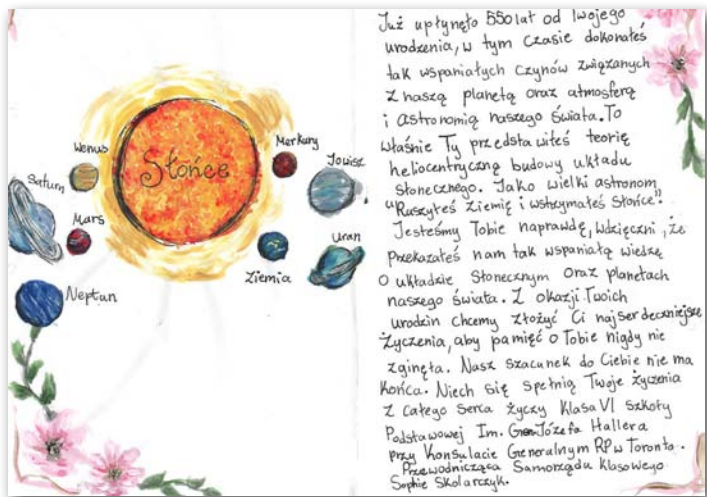 Wenus
Słońce
Merkury
Jowisz
Saturn
Mars
Uran
Ziemia
Neptun
Już upłynęło 550 lat od Twojego
urodzenia, w tym czasie dokonałeś
tak wspaniałych czynów związanych
z naszą planetą oraz atmosferą
i astronomią naszego świata. To
właśnie Ty przedstawiłeś teorię
heliocentryczną budowy układu
słonecznego. Jako wielki astronom
"Ruszyłeś Ziemię i wstrzymałeś Słońce".
Jesteśmy Tobie naprawdę, wdzięczni, że
przekazałeś nam tak wspaniałą wiedzę
o układzie Słonecznym oraz planetach
naszego świata. Z okazji Twoich
urodzin chcemy złożyć Ci najserdeczniejsze
życzenia, aby pamięć o Tobie nigdy nie
zginęła. Nasz szacunek do Ciebie nie ma
końca. Niech się spełnią Twoje życzenia
z całego serca życzy Klasa VI Szkoły
Podstawowej Im. Gen Józefa Hallera
przy Konsulacie Generalnym RP w Toronto.
Przewodnicząca Samorządu Klasowego
Sophie Skolarczyk.